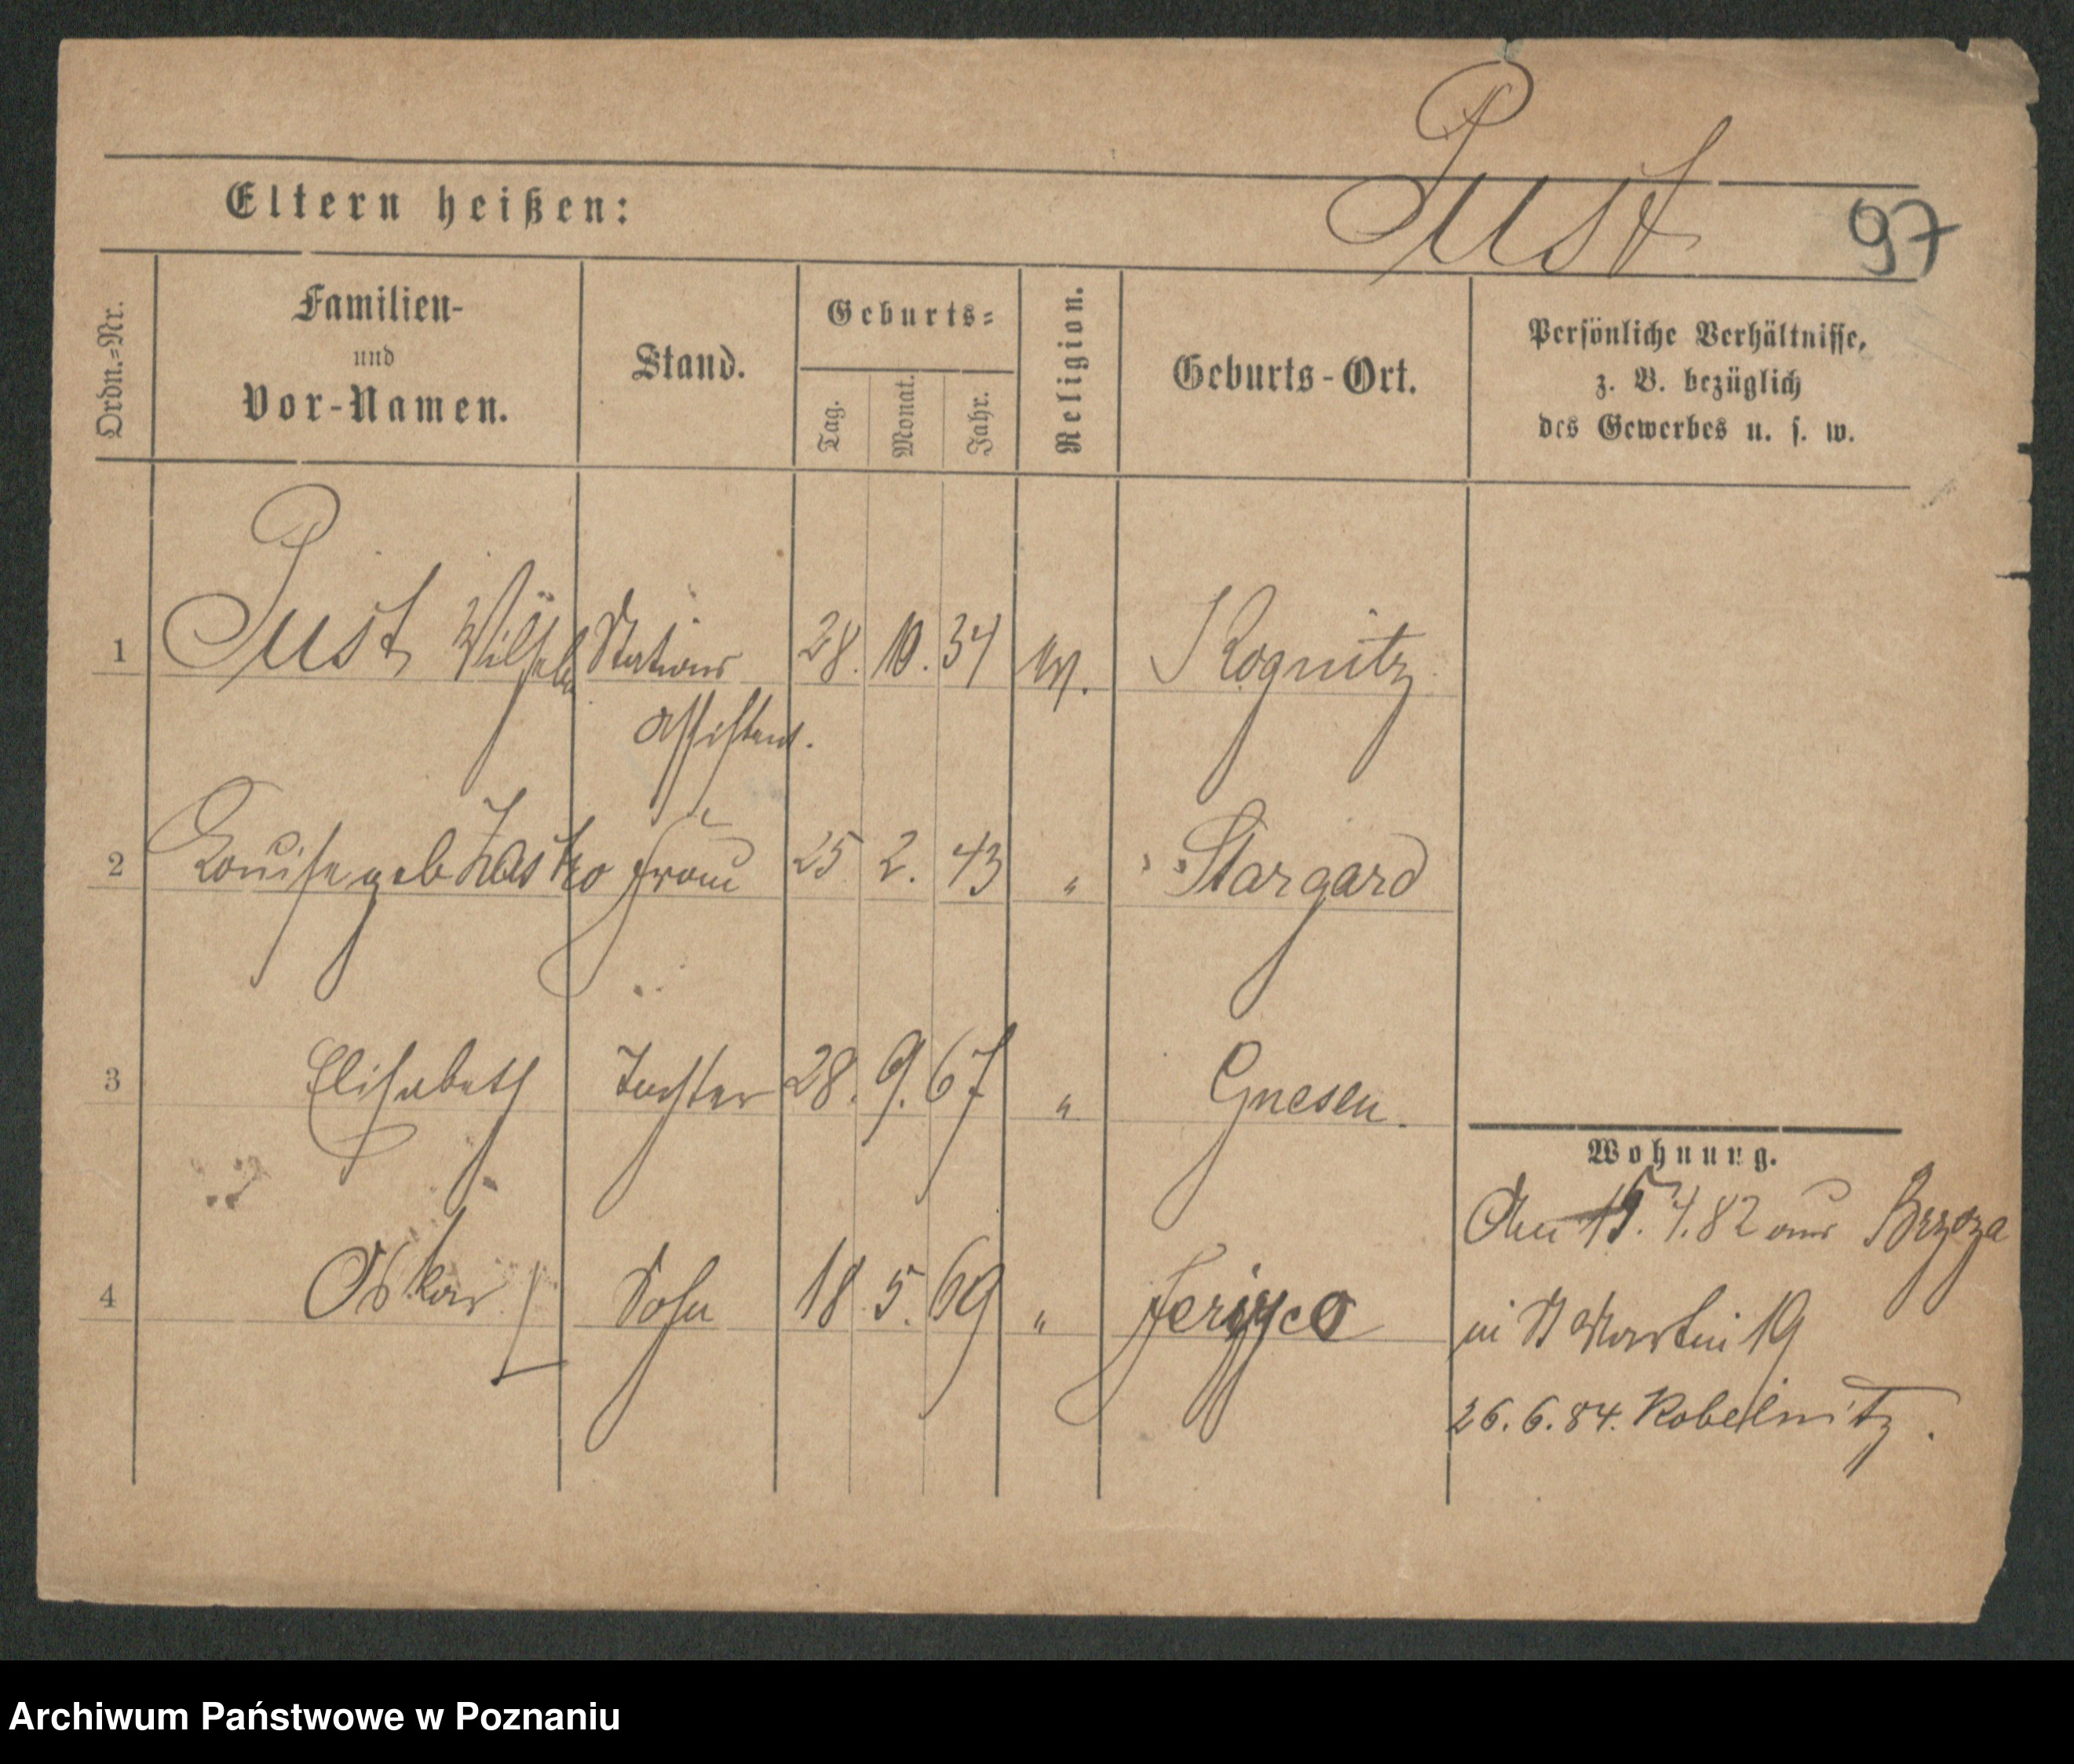 Pust
97
Eltern heißen:
Ordn.=Nr.
Familien-
und
Vor-Namen.
Stand.
Geburts=
Tag.
Monat.
Jahr.
Religion.
Geburts-Ort.
Persönliche Verhältnisse,
z. B. bezüglich
des Gewerbes u. s. w.
1 Pust Wilhelm Stations 28. 10. 34 ev. Rognitz
Assistent.
2 Louise geb Frau 25 2. 43 " Stargard
3 Elisabeth Tochter 28. 9. 67 " Gnesen.
Wohnung.
Den 15. 4. 82 aus Brzoza
4 Oskar Sohn 18. 5. 69 " Jerzyce
in St Martin 19
26. 6. 84. Kobelnitz.
Archiwum Państwowe w Poznaniu